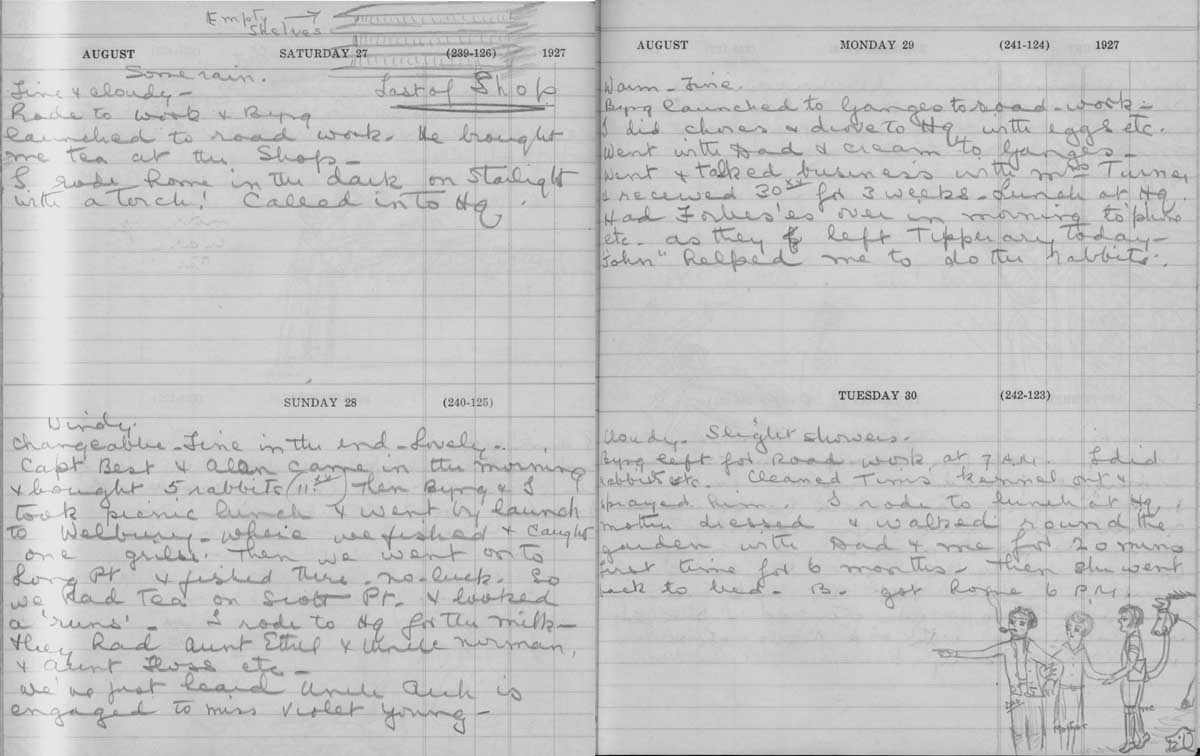 Empty →
Shelves
AUGUST SATURDAY 27 (239-126) 1927
Some rain.
Fine & cloudy - Last of Shop
Rode to work & Byng
launched to road work. He brought
me tea at the Shop -
I rode home in the dark on Starlight
with a torch! Called in to Hq.
SUNDAY 28 (240-125)
Windy.
Changeable - Fine in the end - Lovely -
Capt Best & Alan came in the morning
& bought 5 rabbits (11.50) Then Byng & I
took picnic lunch & went by launch
to Welbury - where we fished & caught
one grilse. Then we went on to
Long Pt & fished there - no luck. So
we had Tea on Scott Pt. & looked
a 'runs' - I rode to Hq for the milk -
they had Aunt Ethel & Uncle Norman,
& Aunt Floss etc -
We've just heard Uncle is
engaged to Miss Violet Young -
AUGUST MONDAY 29 (241-124) 1927
Warm - Fine.
Byng launched to Ganges to road-work -
I did chores & drove to Hq with eggs etc.
Went with Dad & cream to Ganges -
Went & talked business with Mrs Turner
& received 30 for 3 weeks - Lunch at Hq.
Had Forbes'es over in morning to 'phone
etc. as they left Tipperary today -
"John" helped me to do the rabbits.
TUESDAY 30 (242-123)
Cloudy. Slight showers.
Byng left for Road work at 7 A.M. I did
rabbits etc. Cleaned Tims kennel out &
sprayed him. I rode to lunch at Hq
Mother dressed & walked round the
garden with Dad & me for 20 mins
first time for 6 months - then she went
back to bed - B. got home 6 P.M.
Dad Mother me